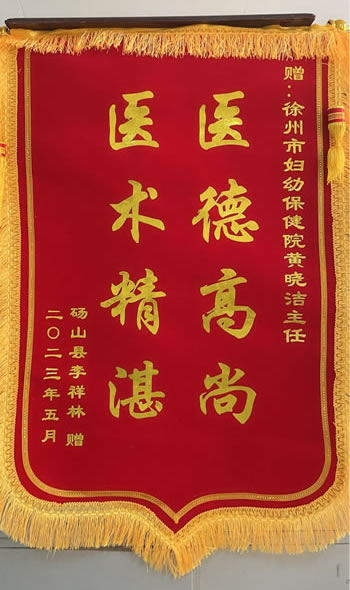 赠：徐州市妇幼保健院黄晓洁主任
医德高尚
医术精湛
砀山县李祥林 赠
二〇二三年五月